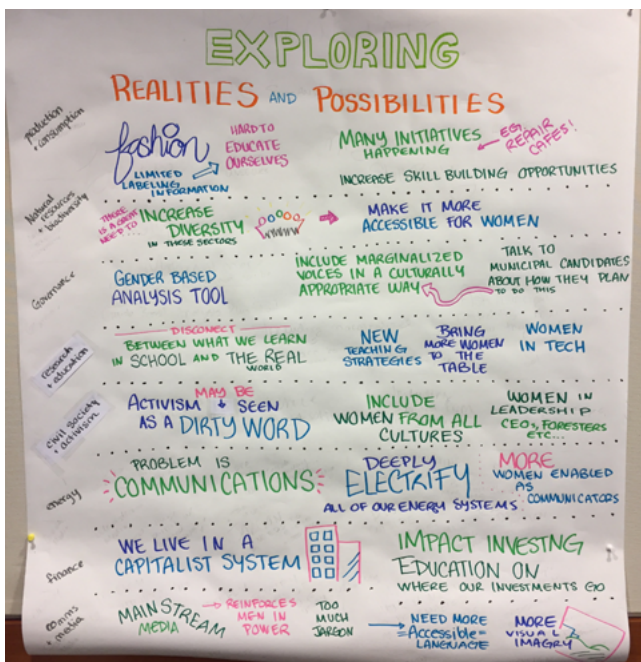 EXPLORING
REALITIES AND POSSIBILITIES
production
+ consumption
fashion
LIMITED
LABELING
INFORMATION
HARD TO
EDUCATE
OURSELVES
MANY INITIATIVES
HAPPENING
EG. REPAIR
CAFES!
INCREASE SKILL BUILDING OPPORTUNITIES
Natural
resources
+ biodiversity
THERE
IS A GREAT
NEED TO...
INCREASE
DIVERSITY
IN THESE SECTORS
MAKE IT MORE
ACCESSIBLE FOR WOMEN
Governance
GENDER BASED
ANALYSIS TOOL
INCLUDE MARGINALIZED
VOICES IN A CULTURALLY
APPROPRIATE WAY
TALK TO
MUNICIPAL CANDIDATES
ABOUT HOW THEY PLAN
TO DO THIS
research
+ education
DISCONECT
BETWEEN WHAT WE LEARN
IN SCHOOL AND THE REAL
WORLD
NEW
TEACHING
STRATEGIES
BRING
MORE WOMEN
TO THE
TABLE
WOMEN
IN TECH
civil society
+ activism
MAY BE
ACTIVISM SEEN
AS A DIRTY WORD
INCLUDE
WOMEN FROM ALL
CULTURES
WOMEN IN
LEADERSHIP
CEOs, FORESTERS
ETC...
energy
PROBLEM IS
COMMUNICATIONS
DEEPLY
ELECTRIFY
ALL OF OUR ENERGY SYSTEMS
MORE
WOMEN ENABLED
AS
COMMUNICATORS
finance
WE LIVE IN A
CAPITALIST SYSTEM
IMPACT INVESTNG
EDUCATION ON
WHERE OUR INVESTMENTS GO
comms
+ media
MAINSTREAM
MEDIA
REINFORCES
MEN IN
POWER
TOO
MUCH
JARGON
NEED MORE
=Accessible=
LANGUAGE
MORE
VISUAL
IMAGRY